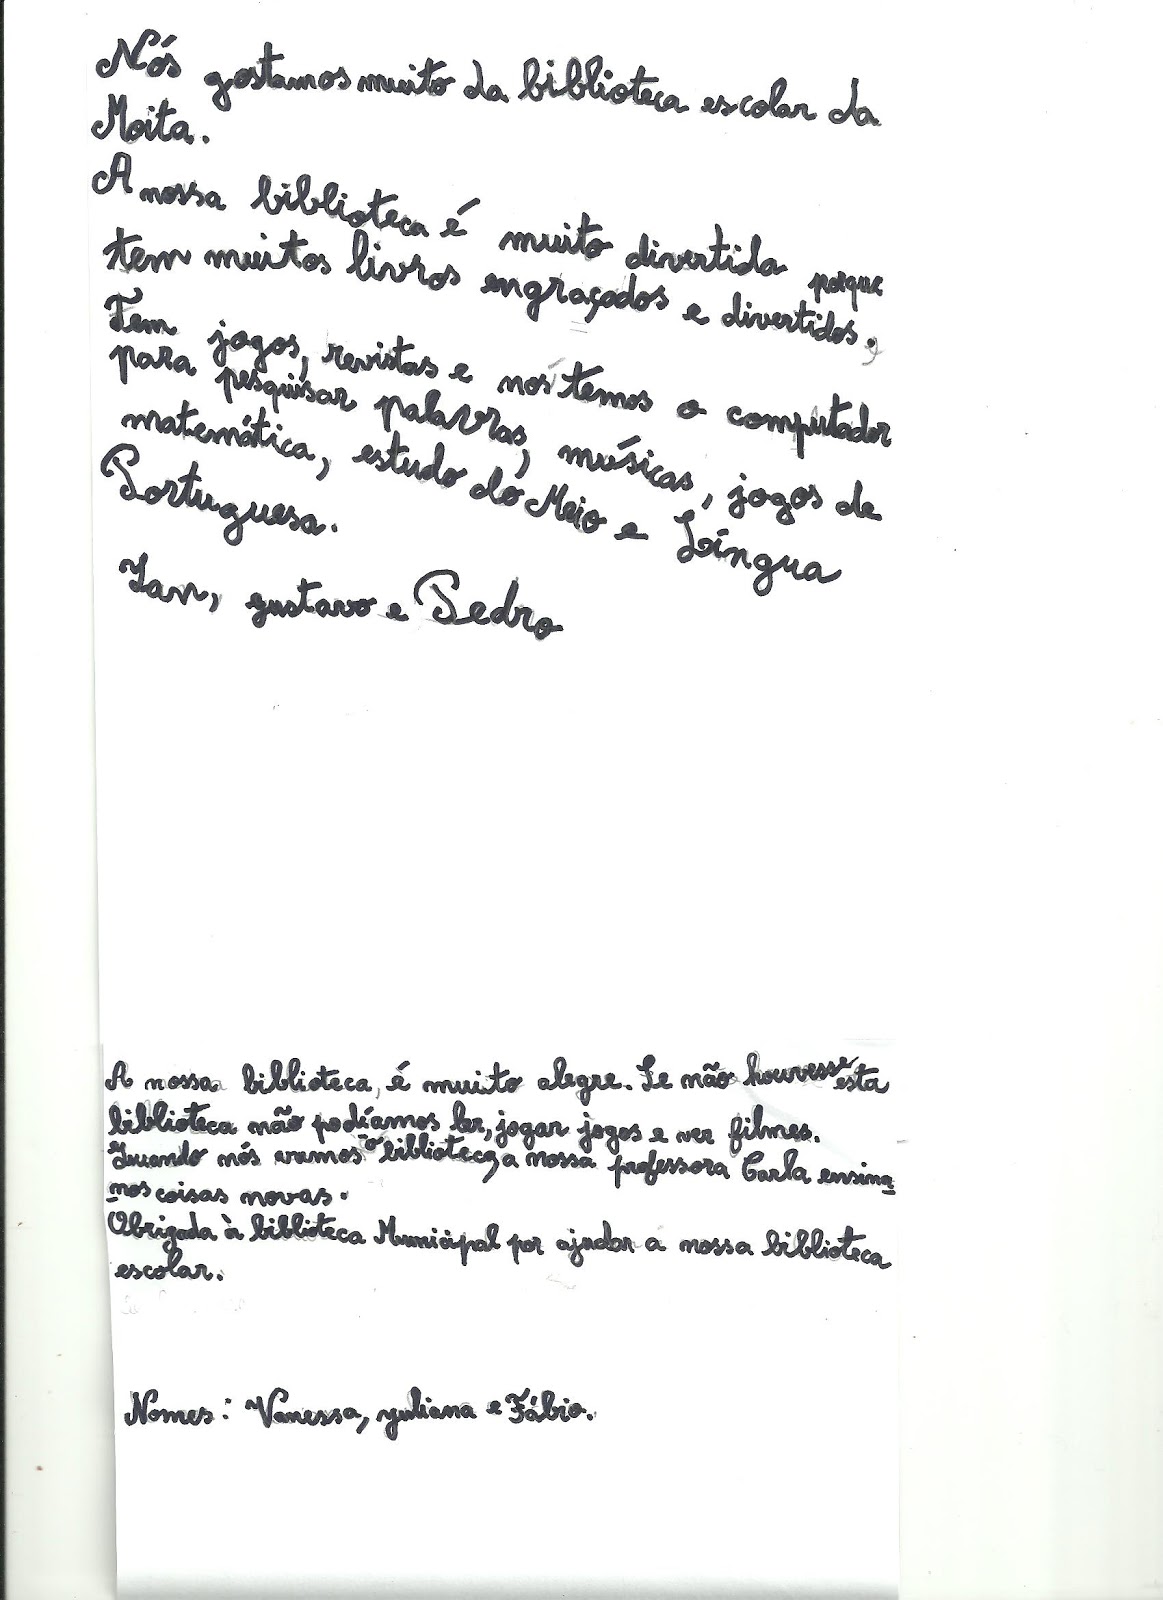 Nós gostamos muito da biblioteca escolar da
Moita.
A nossa biblioteca é muito divertida porque
tem muitos livros engraçados e divertidos.
Tem jogos, revistas e nós temos o computador
para pesquisar palavras, músicas, jogos de
matemática, estudo do Meio e Língua
Portuguesa.
Ian, gustavo e Pedro
A nossa biblioteca, é muito alegre. Se não houvesse esta
biblioteca não podíamos ler, jogar jogos e ver filmes.
Quando nós vamos à biblioteca, a nossa professora Carla ensina
nos coisas novas.
Obrigada à biblioteca Municipal por ajudar a nossa biblioteca
escolar.
Nomes: Vanessa, yuliana e Fábio.